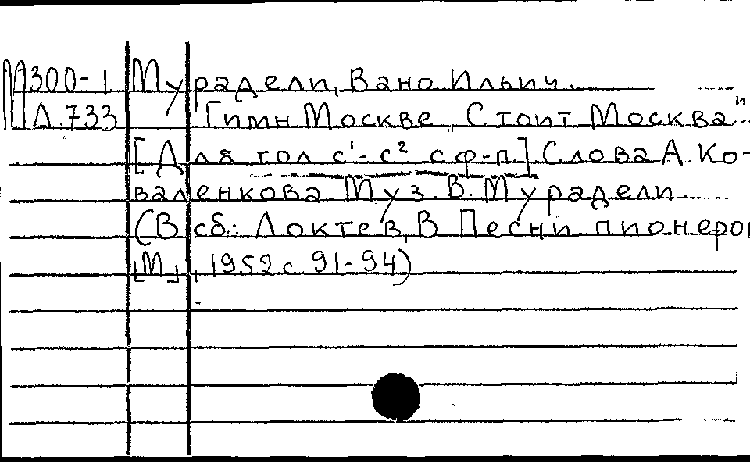 М300-1 Мурадели, Вано Ильич.
Д.733 Гимн Москве. "Стоит Москва"..
[Для гол с¹-с² с ф-п.] Слова А. Ко-
валенкова Муз. В. Мурадели.
(В сб.: Локтев, В Песни пионеров
[М], 1952 с. 91-94)